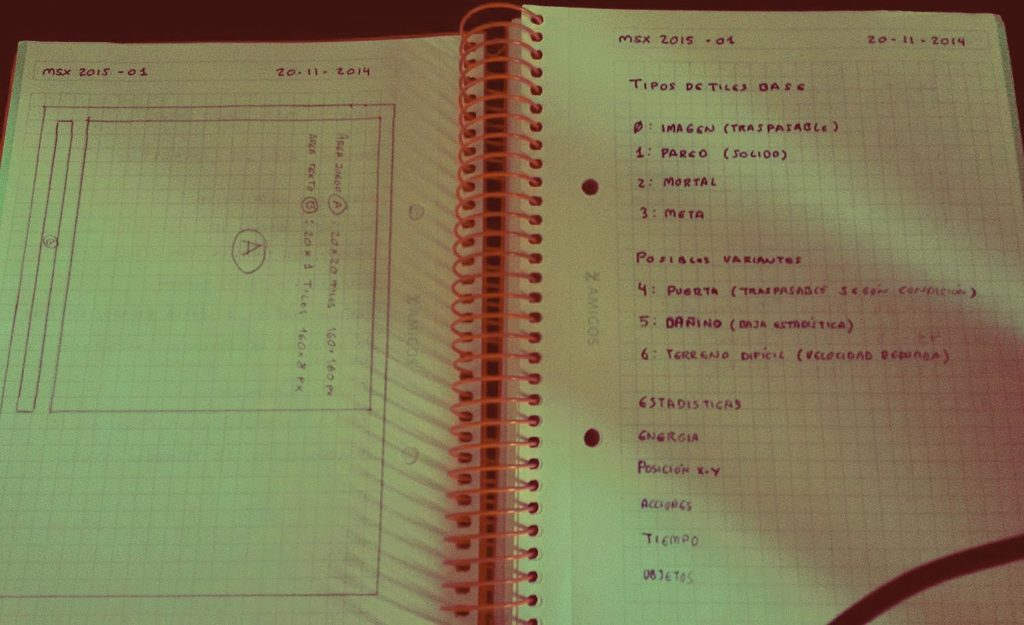 MSX 2015 - 01 20-11-2014
AREA JUEGO A : 20x20 TILES 160x160 PX
AREA TEXTO B : 20x1 TILES 160x8 PX
A
B
MSX 2015 - 01 20-11-2014
TIPOS DE TILES BASE
0: IMAGEN (TRASPASABLE)
1: PARED (SOLIDO)
2: MORTAL
3: META
POSIBLES VARIANTES
4: PUERTA (TRASPASABLE SEGÚN CONDICIÓN)
5: DAÑINO (BAJA ESTADÍSTICA)
6: TERRENO DIFÍCIL (VELOCIDAD REDUCIDA)
ESTADISTICAS
ENERGIA
POSICIÓN X-Y
ACCIONES
TIEMPO
OBJETOS
AMIGOS
AMIGOS